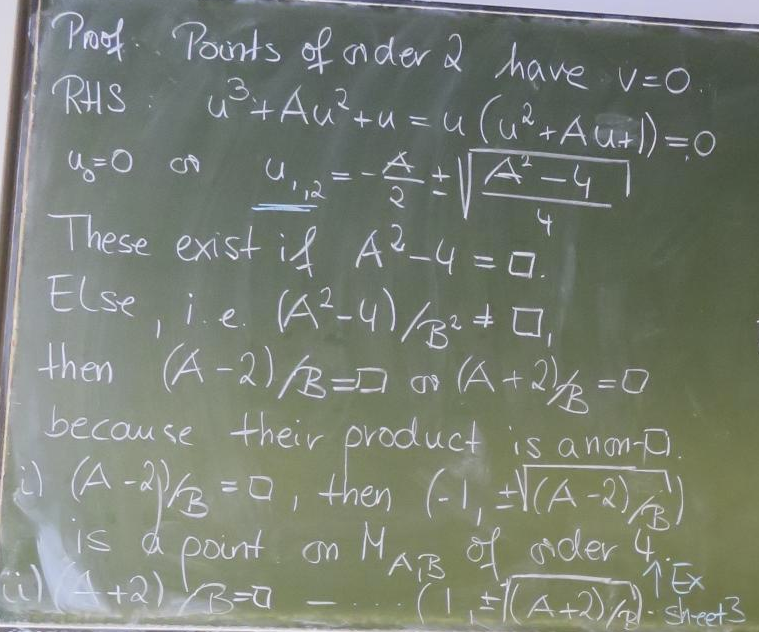 Proof. Points of order 2 have v=0.
RHS: u³+Au²+u = u(u²+Au+1)=0
u₀=0 or u₁,₂ = -A/2 ± √((A²-4)/4)
These exist if A²-4 = □.
Else, i.e. (A²-4)/B² ≠ □,
then (A-2)/B=□ or (A+2)/B=□
because their product is a non-□.
i) (A-2)/B=□, then (-1, ±√((A-2)/B))
is a point on M_{A,B} of order 4. ↑ Ex
ii) (A+2)/B=□ — .... (1, ±√((A+2)/B)- sheet 3